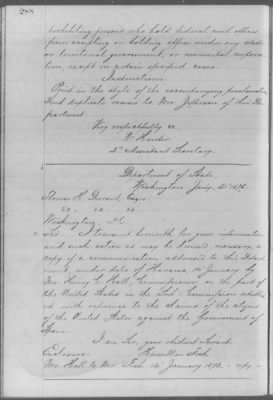 288
prohibiting persons who hold federal civil offices
from accepting or holding office under any state
or territorial government, or municipal corpora-
tion, except in certain specified cases.
Instructions.
Print in the style of the accompanying proclamation
Send duplicate revises to Mr. Jefferson of this De-
partment.
Very respectfully &c.
W. Hunter
2d Assistant Secretary.
Department of State,
Washington Jany. 21st 1873.
Thomas H. Durant, Esqre
&c. &c. &c.
Washington, D.C.
Sir: I transmit herewith for your information
and such action as may be deemed necessary, a
copy of a communication addressed to this Depart-
ment, under date of Havana, January by
Mr. Henry C. Hall, Commissioner on the part of
the United States in the Commission
ed with reference to the claims of the citizens
of the United States against the Government of
Spain.
I am Sir, your obedient Servant.
Enclosure: Hamilton Fish
Mr. Hall to Mr. Fish January 1873. - copy -